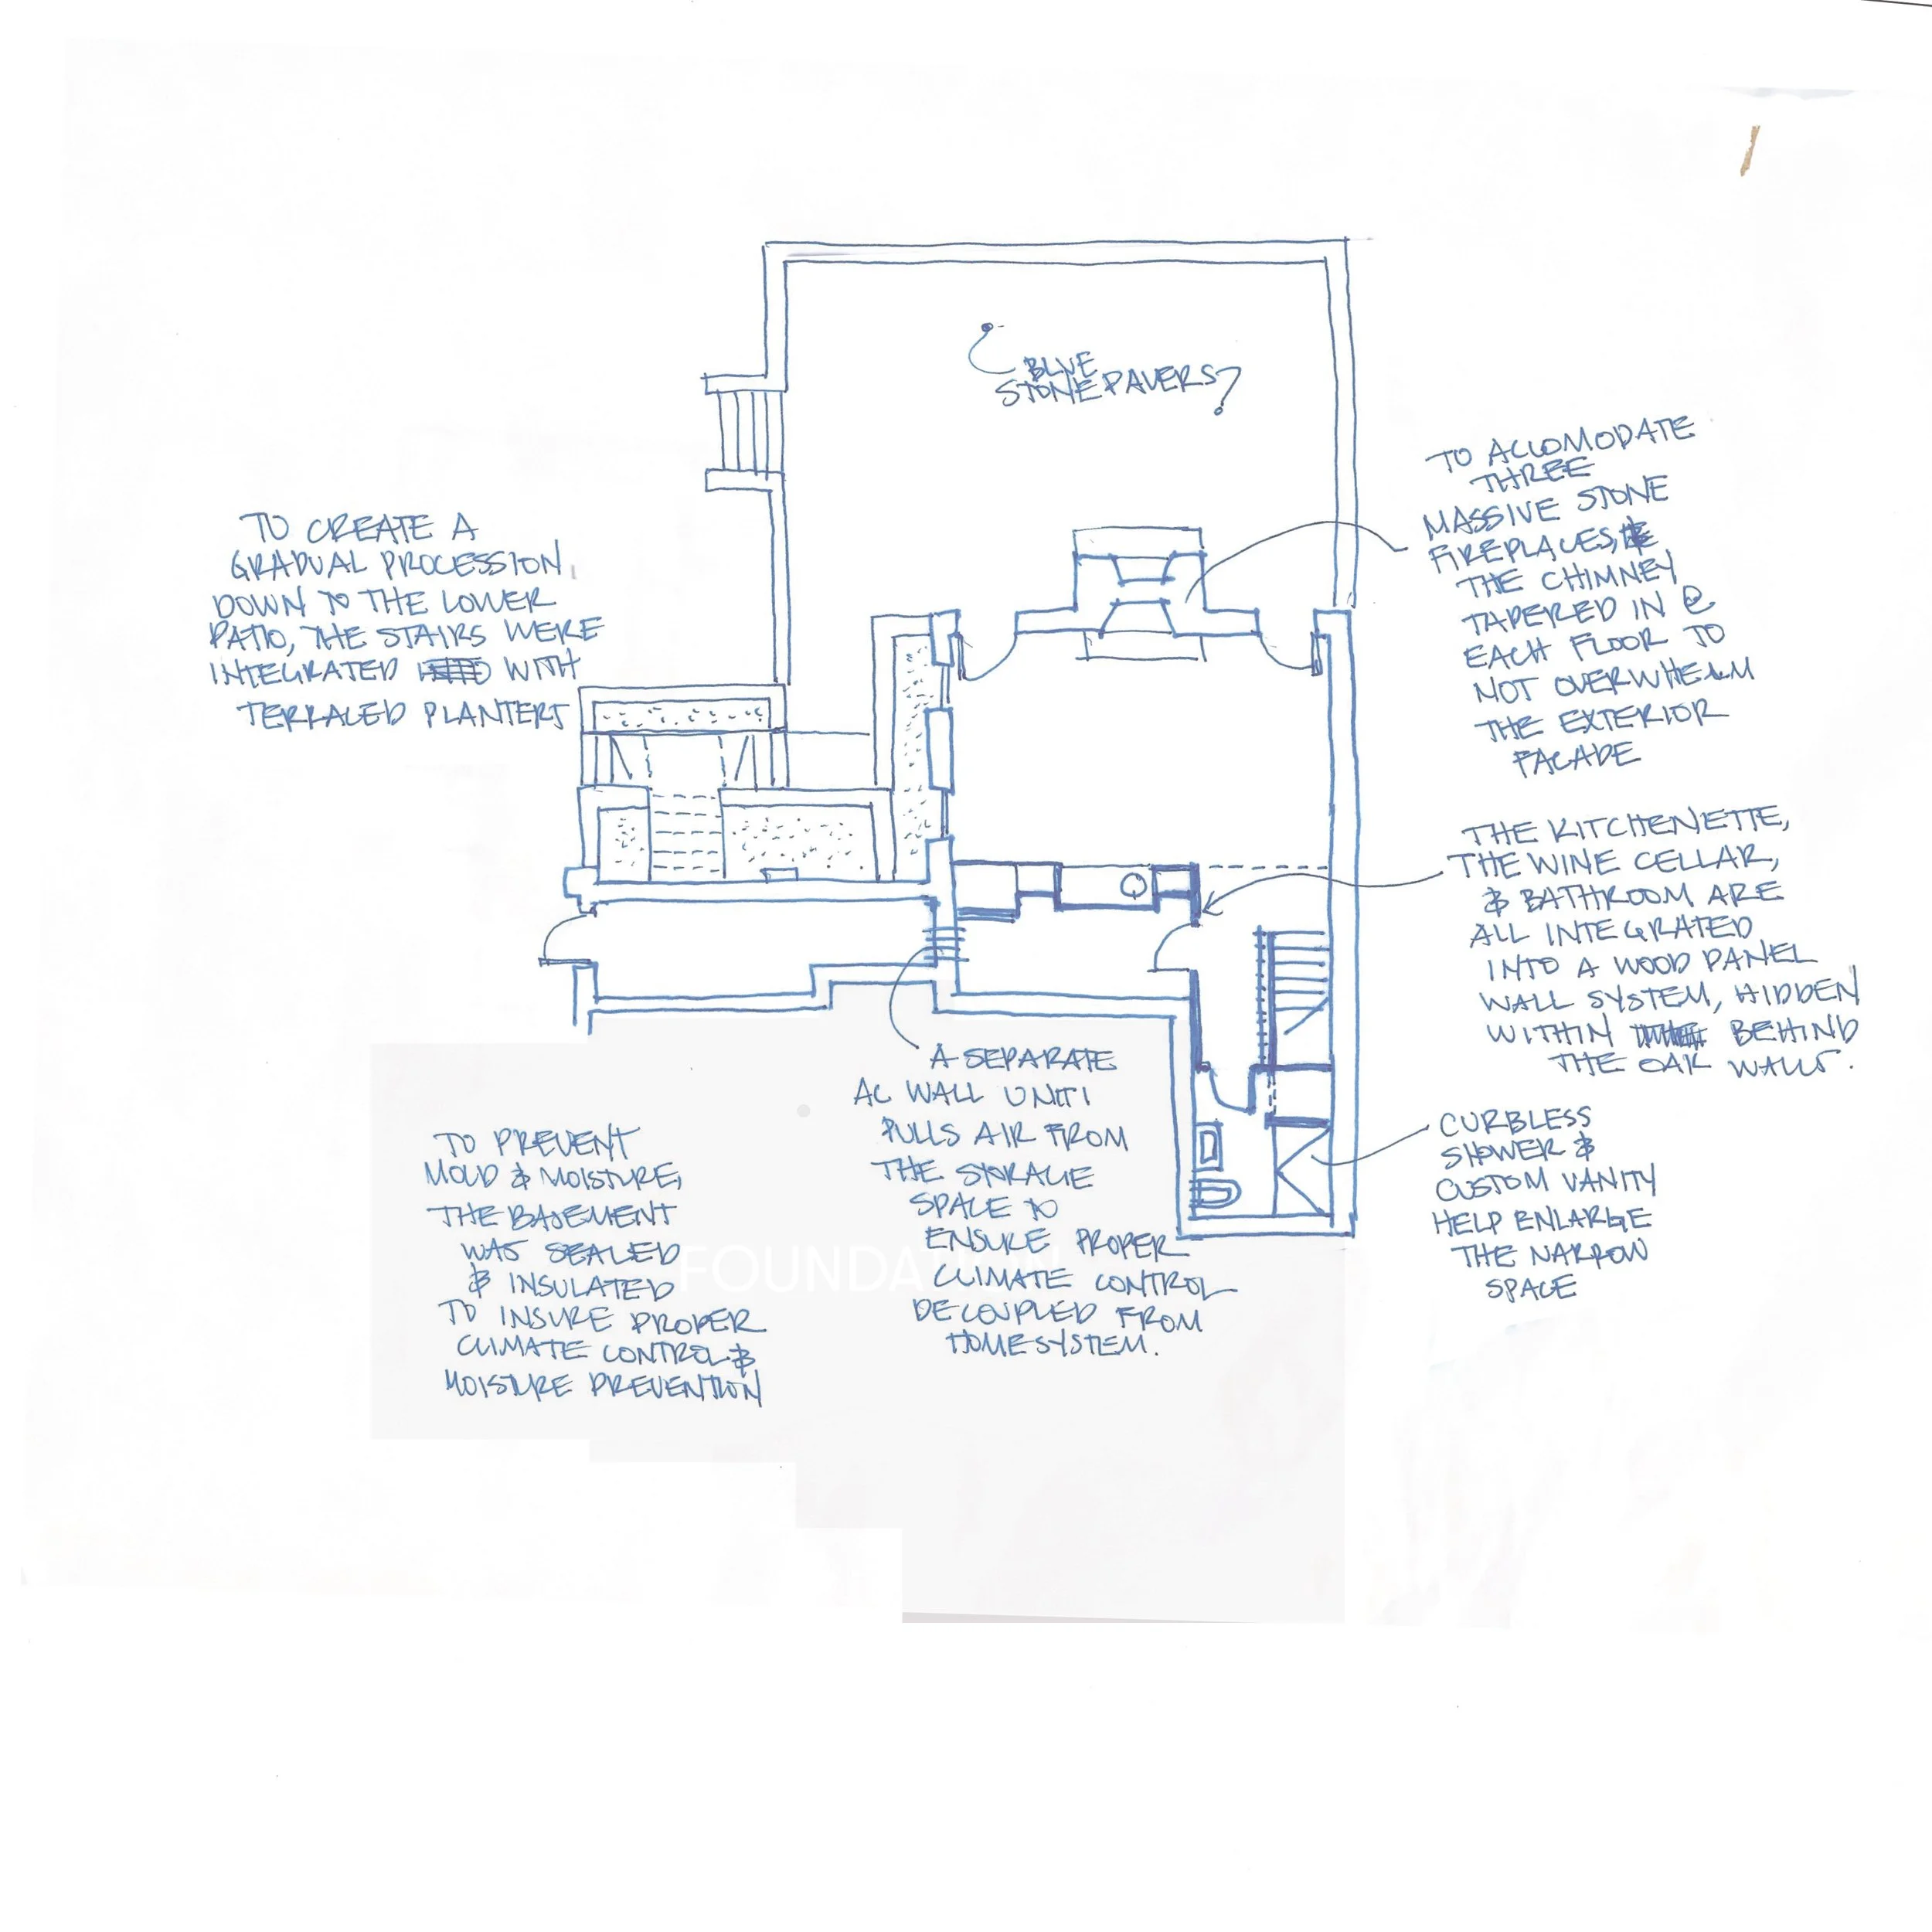 BLUE
STONE PAVERS?
TO CREATE A
GRADUAL PROCESSION
DOWN TO THE LOWER
PATIO, THE STAIRS WERE
INTEGRATED WITH
TERRACED PLANTERS
TO ACCOMODATE
THREE
MASSIVE STONE
FIREPLACES,
THE CHIMNEY
TAPERED IN @
EACH FLOOR TO
NOT OVERWHELM
THE EXTERIOR
FACADE
THE KITCHENETTE,
THE WINE CELLAR,
& BATHROOM ARE
ALL INTEGRATED
INTO A WOOD PANEL
WALL SYSTEM, HIDDEN
WITHIN BEHIND
THE OAK WALLS.
CURBLESS
SHOWER &
CUSTOM VANITY
HELP ENLARGE
THE NARROW
SPACE
A SEPARATE
AC WALL UNIT
PULLS AIR FROM
THE STORAGE
SPACE TO
ENSURE PROPER
CLIMATE CONTROL
DECOUPLED FROM
HOME SYSTEM.
TO PREVENT
MOLD & MOISTURE,
THE BASEMENT
WAS SEALED
& INSULATED
TO INSURE PROPER
CLIMATE CONTROL &
MOISTURE PREVENTION
FOUNDATION